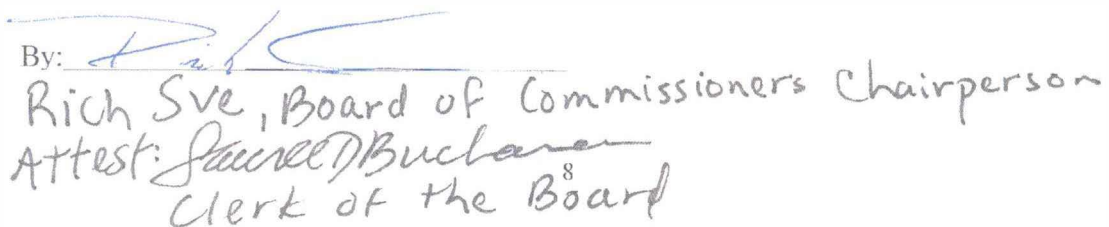 By: Rich
Rich Sve, Board of Commissioners Chairperson
Attest: Laurel D Buchanan
8
Clerk of the Board